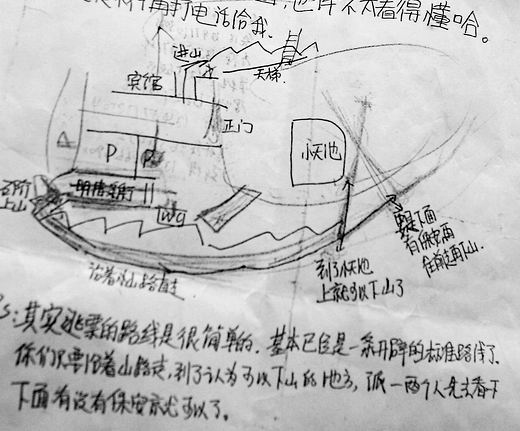 再打电话给我.
也许不太看得懂哈。
进山
天梯
宾馆
正门
P
P
P
小天池
明清
石阶
上山
wg
要是下面
有保安再
往前走再下山.
到了小天池
上就可以下山了
沿着山路直走
PS:其实逃票的路线是很简单的.基本已经是一条开辟的标准路径了.
你们只要沿着山路走,到了认为可以下山的地方,派一两个人先去看下
下面有没有保安就可以了。